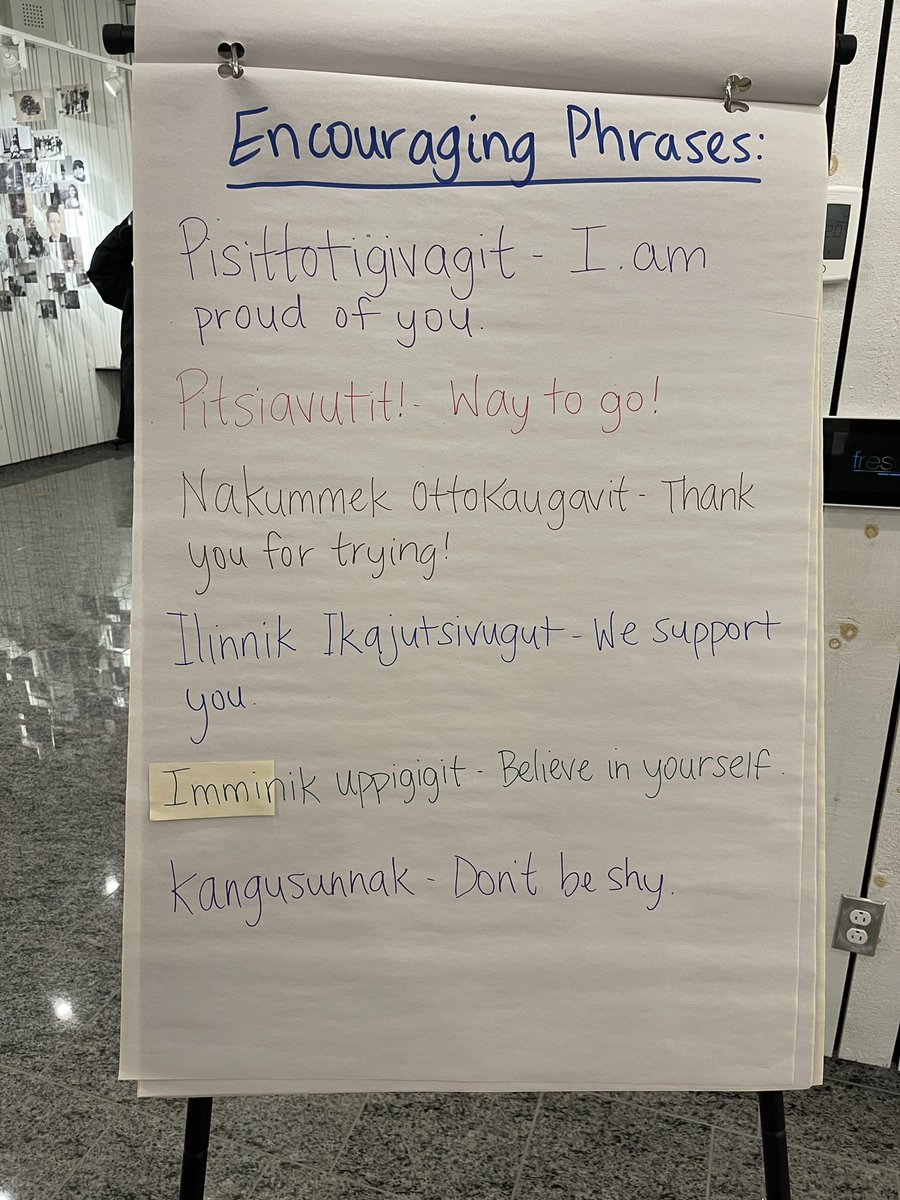 Encouraging Phrases:
Pisittotigivagit - I am
proud of you.
Pitsiavutit! - Way to go!
Nakummek OttoKaugavit - Thank
you for trying!
Ilinnik Ikajutsivugut - We support
you.
Imminik uppigigit - Believe in yourself.
Kangusunnak - Don't be shy.